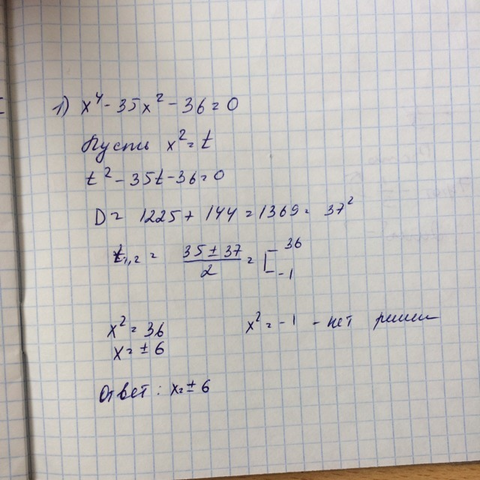 1) x⁴ - 35x² - 36 = 0
Пусть x² = t
t² - 35t - 36 = 0
D = 1225 + 144 = 1369 = 37²
t₁,₂ = (35 ± 37)/2 = [36
-1
x² = 36 x² = -1 - нет
x = ± 6
Ответ: x = ± 6